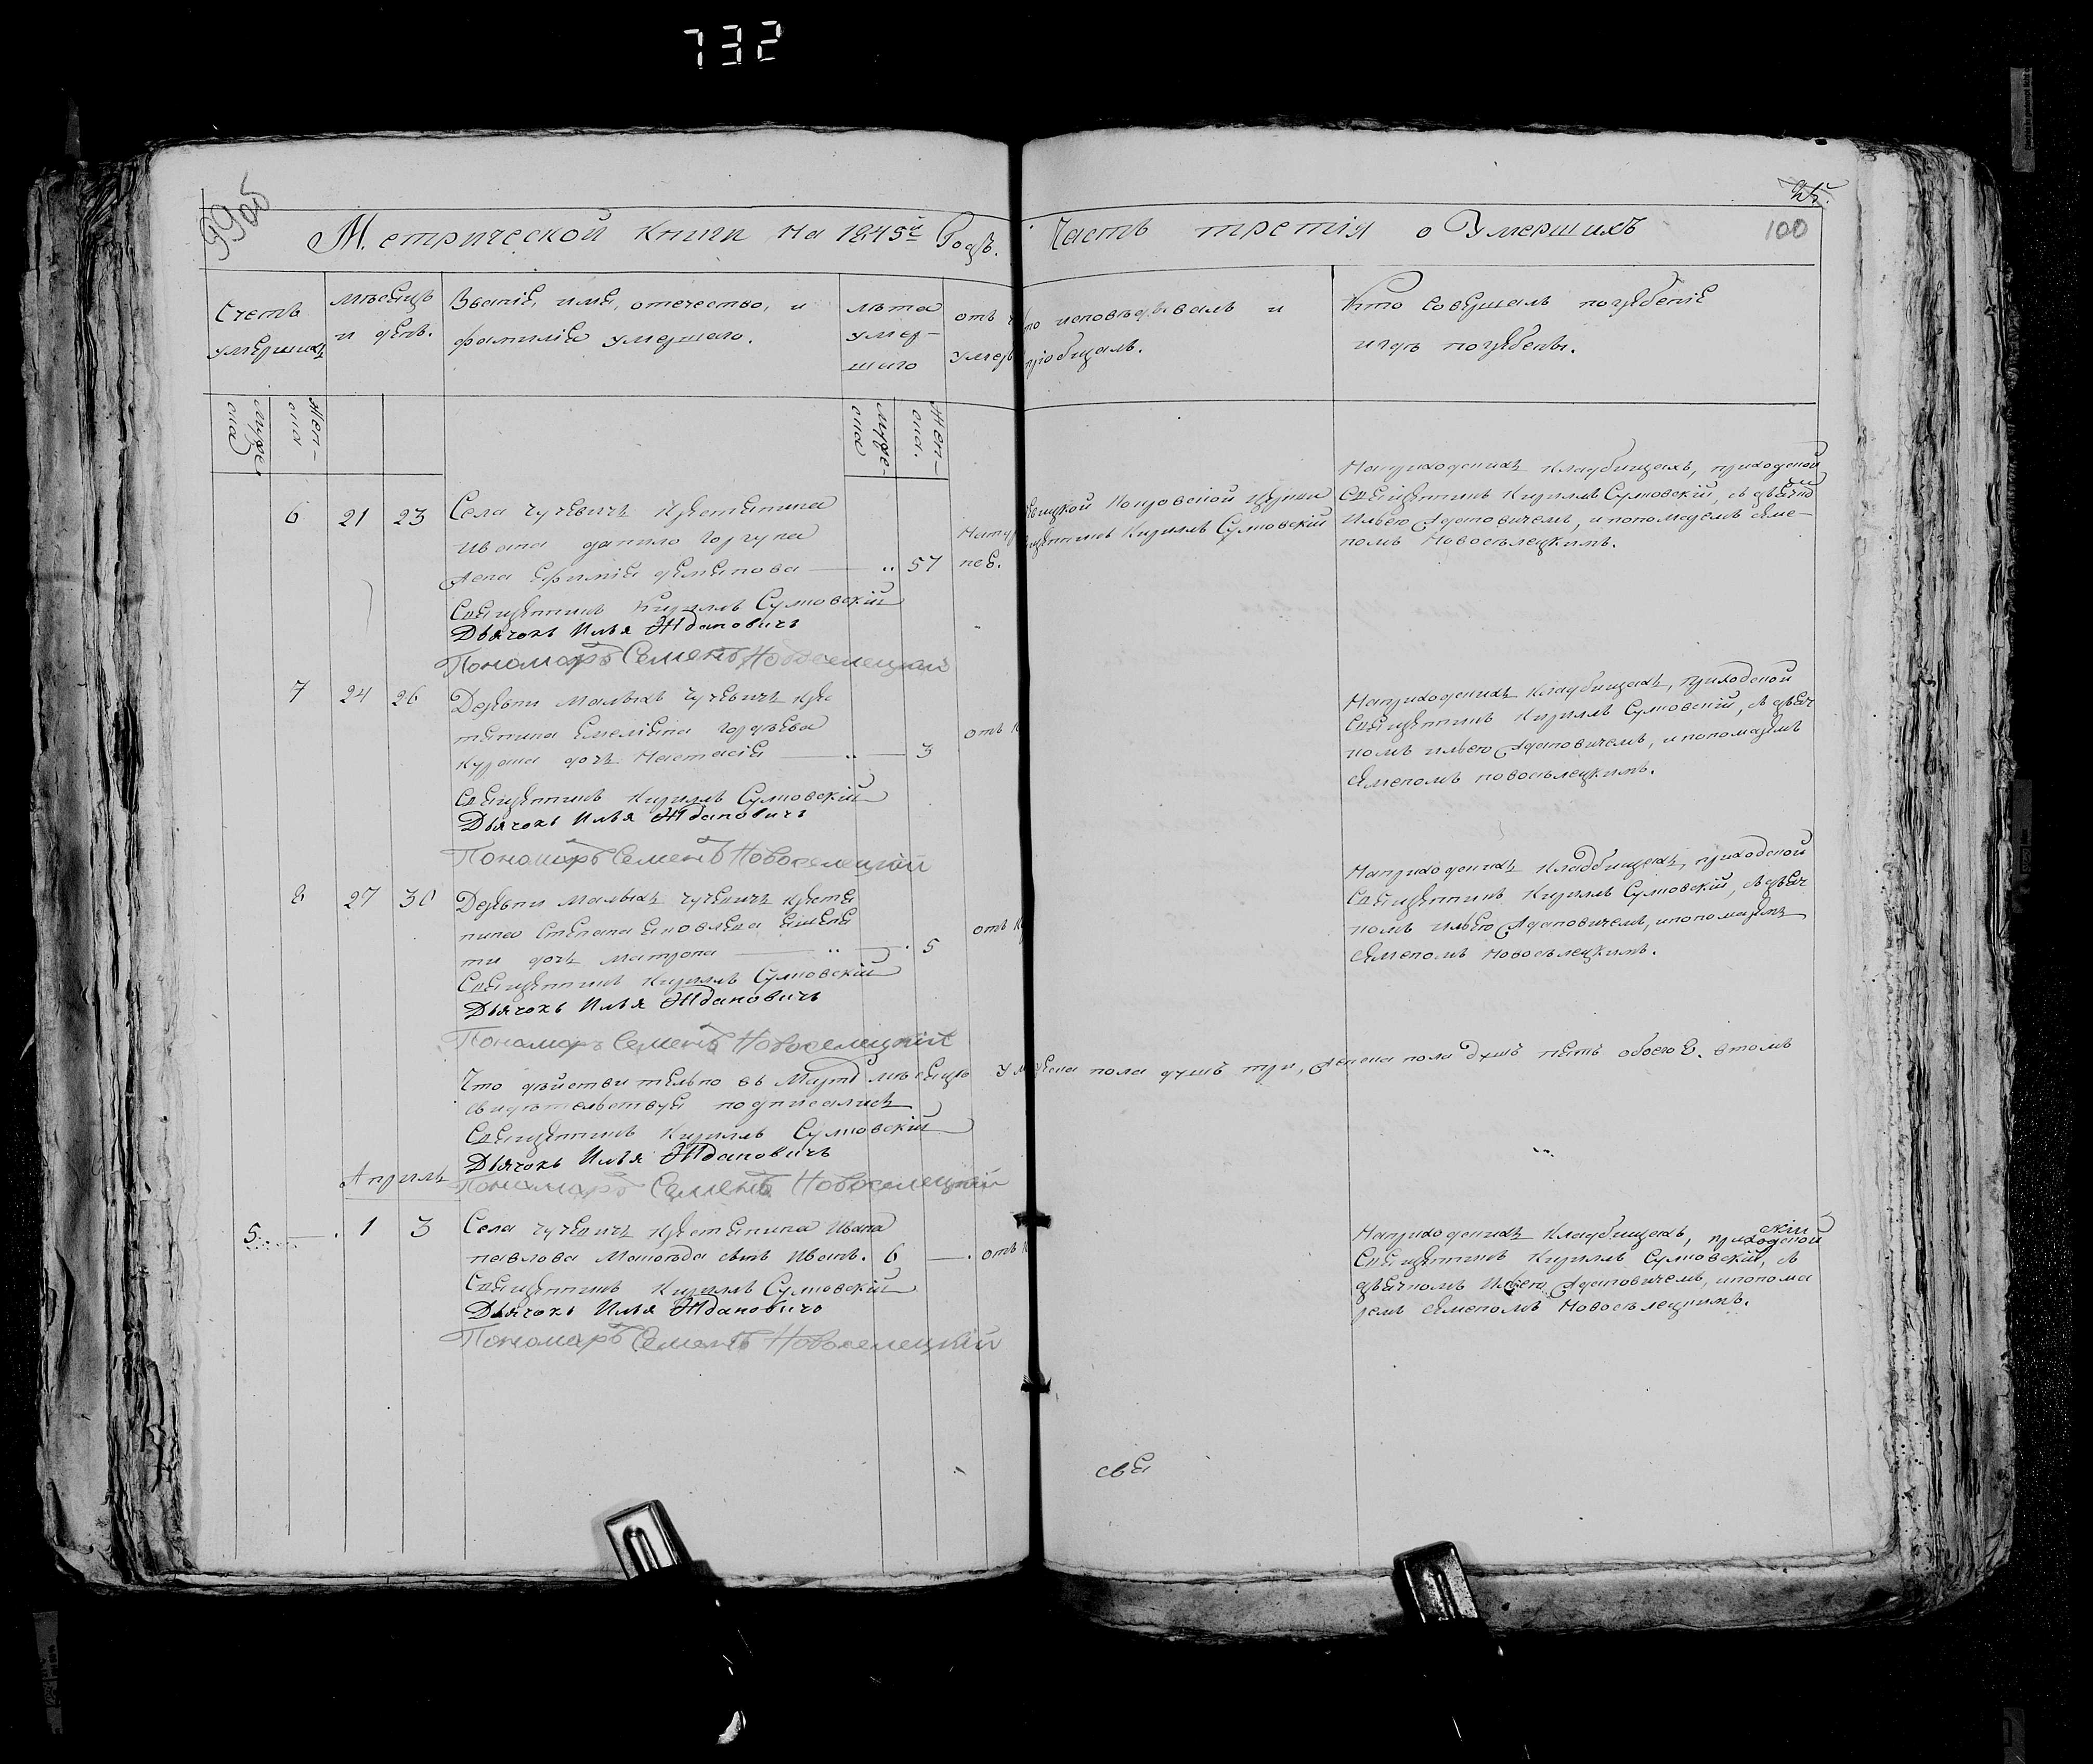 732
99об
Метрической книги на 1845й Годъ.
Часть третія о Умершихъ
100
Счетъ умершихъ
мѣсяцъ и день.
Званіе, имя, отечество, и
фамилія умершаго.
лѣта
умер-
шаго
отъ
умер
исповѣдывалъ и
пріобщалъ.
Кто совершалъ погребеніе
и гдѣ погребены.
Муже-
ска
Жен-
ска
Муже-
ска
Жен-
ска.
6 21 23 Села Чучевичъ крестянина
Ивана Данило
жена Ефимія Семенова — „ 57
Священникъ Кириллъ Сулковскій
Дьячокъ Илья Ждановичъ
Пономарь Семенъ Новоселецкій
Нату
нев.
церкви
Кириллъ Сулковскій
На приходскихъ кладбищахъ, приходской
Священникъ Кириллъ Сулковскій, съ дьячко
Ильею Ждановичемъ, и пономаремъ Семе-
номъ Новоселецкимъ.
7 24 26 Деревни Малыхъ Чучевичъ кре
стянина Емеліяна Гордѣева
Курана дочь Настасія — „ — 3
отъ К
Священникъ Кириллъ Сулковскій
Дьячокъ Илья Ждановичъ
Пономарь Семенъ Новоселецкій
На приходскихъ кладбищахъ, приходской
Священникъ Кириллъ Сулковскій, съ дьяч
комъ Ильею Ждановичемъ, и пономаремъ
Семеномъ Новоселецкимъ.
8 27 30 Деревни Малыхъ Чучевичъ крестя
нина Степана Яковлева
дочь Матрона — „ — 5
отъ К
Священникъ Кириллъ Сулковскій
Дьячокъ Илья Ждановичъ
Пономарь Семенъ Новоселецкій
На приходскихъ кладбищахъ, приходской
Священникъ Кириллъ Сулковскій, съ дьяч
комъ Ильею Ждановичемъ, и пономаремъ
Семеномъ Новоселецкимъ.
Что дѣйствительно въ Мартѣ мѣсяцѣ ум пола душъ три, женска пола душъ пять обоего 8. въ томъ
свидѣтельствуя подписались
Священникъ Кириллъ Сулковскій
Дьячокъ Илья Ждановичъ
Пономарь Семенъ Новоселецкій
Апрѣль
5 1 3 Села Чучевичъ крестянина Ивана
Павлова сынъ Иванъ. 6 — отъ К
Священникъ Кириллъ Сулковскій
Дьячокъ Илья Ждановичъ
Пономарь Семенъ Новоселецкій
На приходскихъ кладбищахъ, приходской
Священникъ Кириллъ Сулковскій, съ
дьячкомъ Ильею Ждановичемъ, и понома
ремъ Семеномъ Новоселецкимъ.
свя